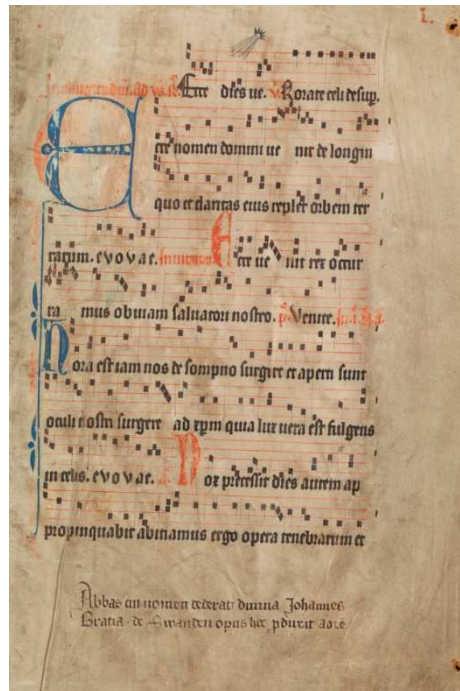 I.
Ecce dies ve. V. Rorate celi desup.
Ecce nomen domini ve nit de longin
quo et claritas eius replet orbem ter
rarum. evovae. Ecce ve nit rex occur
ra mus obviam salvatori nostro. p. Venite.
Hora est iam nos de sompno surgere et aperti sunt
oculi nostri surgere ad xpm quia lux vera est fulgens
in celis. evovae. a. Nox precessit dies autem ap
propinquabit abiciamus ergo opera tenebrarum et
Abbas cui nomen dederat divina Johannes
Gratia de Swanden opus hec pduxit